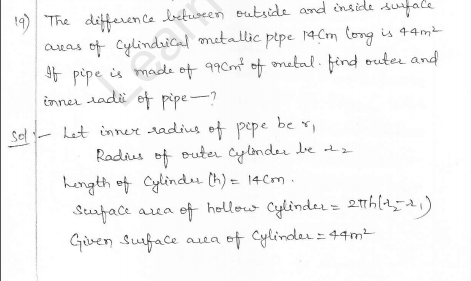 19) The difference between outside and inside surface
areas of cylindrical metallic pipe 14cm long is 44m²
If pipe is made of 99cm³ of metal. find outer and
inner radii of pipe —?
Sol :- Let inner radius of pipe be r₁
Radius of outer cylinder be r₂
Length of cylinder (h) = 14cm.
Surface area of hollow cylinder = 2πh(r₂-r₁)
Given surface area of cylinder = 44m²
Learn